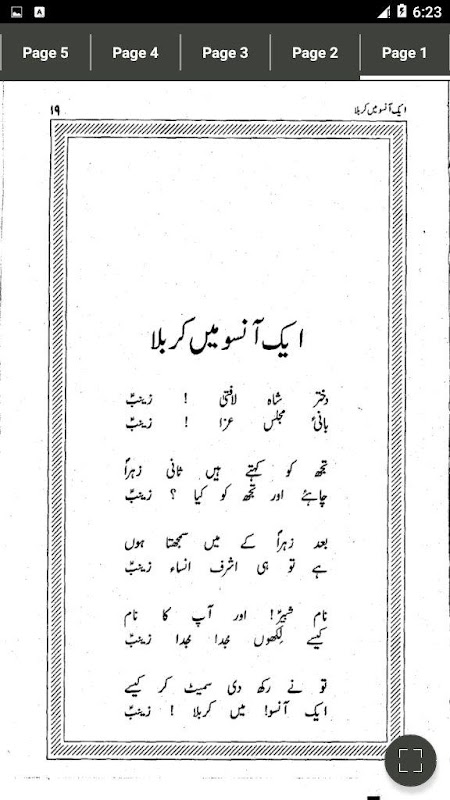 6:23
Page 5 Page 4 Page 3 Page 2 Page 1
ایک آنسو میں کربلا ۱۹
ایک آنسو میں کربلا
دختر شاہ لافتیٰ ! زینبؑ
بانیٔ مجلس عزا ! زینبؑ
تجھ کو کہتے ہیں ثانی زہراؑ
چاہئے اور تجھ کو کیا ؟ زینبؑ
بعد زہراؑ کے میں سمجھتا ہوں
ہے تو ہی اشرف انساء زینبؑ
نام شبیرؑ! اور آپ کا نام
کیسے لکھوں جدا جدا زینبؑ
تو نے رکھ دی سمیٹ کر کیسے
ایک آنسو! میں کربلا ! زینبؑ